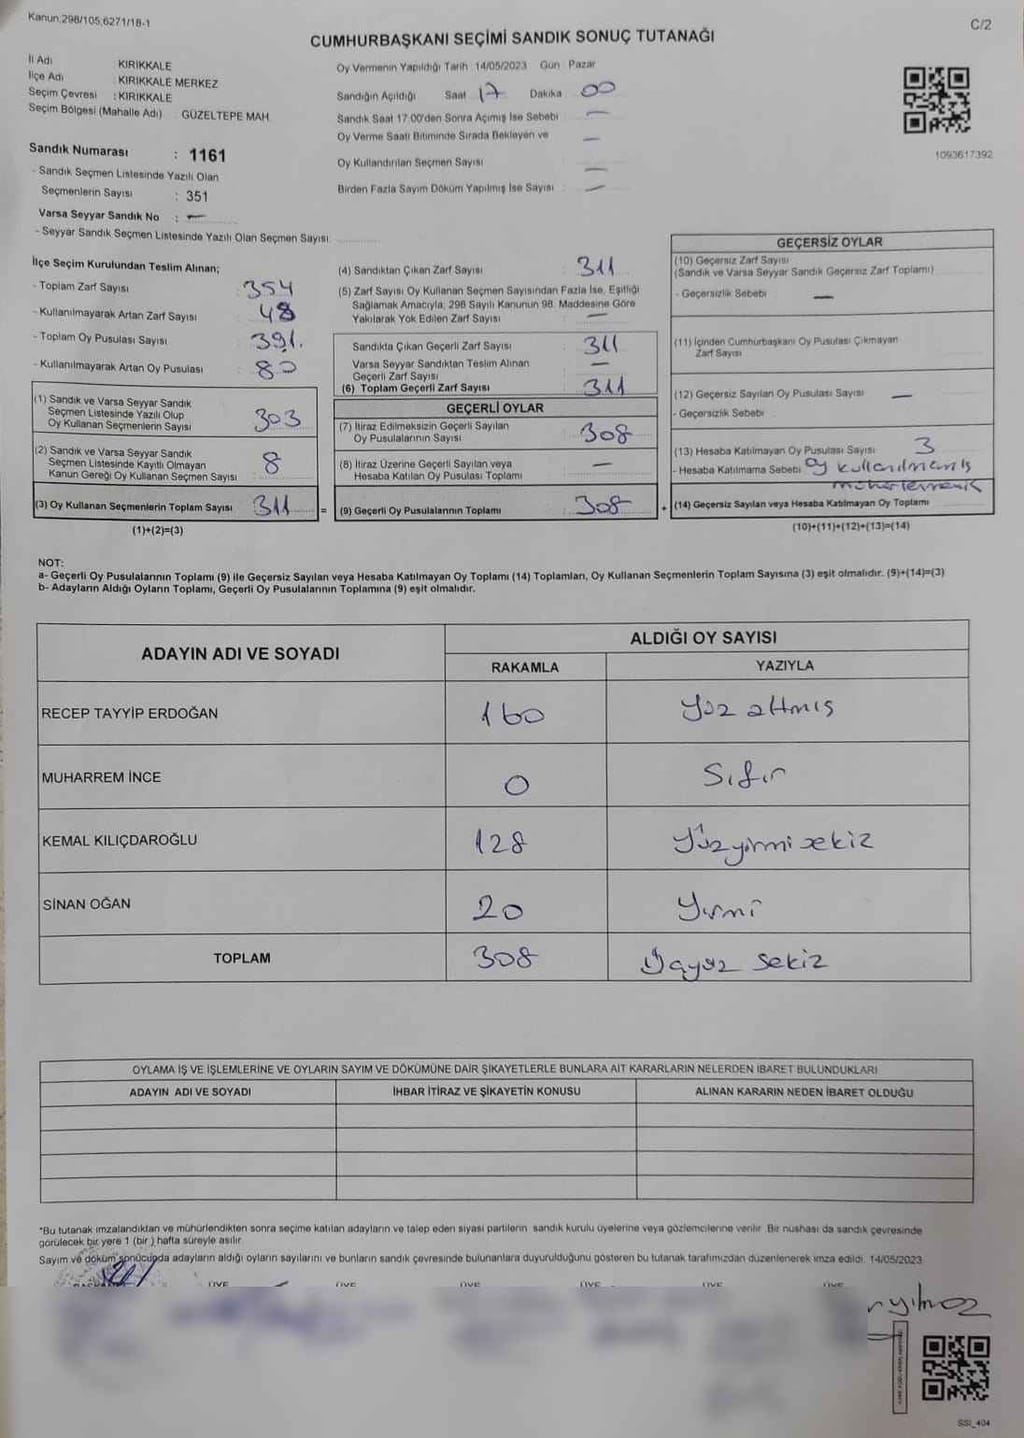 Kanun:298/105,6271/18-1
C/2
CUMHURBAŞKANI SEÇİMİ SANDIK SONUÇ TUTANAĞI
İl Adı KIRIKKALE
İlçe Adı : KIRIKKALE MERKEZ
Seçim Çevresi : KIRIKKALE
Seçim Bölgesi (Mahalle Adı) GÜZELTEPE MAH.
Oy Vermenin Yapıldığı Tarih 14/05/2023 Gün Pazar
Sandığın Açıldığı Saat 17 Dakika 00
Sandık Saat 17:00'den Sonra Açımış İse Sebebi —
Oy Verme Saati Bitiminde Sırada Bekleyen ve —
Oy Kullandırılan Seçmen Sayısı —
Birden Fazla Sayım Döküm Yapılmış İse Sayısı —
1093617392
Sandık Numarası : 1161
- Sandık Seçmen Listesinde Yazılı Olan
Seçmenlerin Sayısı : 351
Varsa Seyyar Sandık No : —
- Seyyar Sandık Seçmen Listesinde Yazılı Olan Seçmen Sayısı
İlçe Seçim Kurulundan Teslim Alınan;
- Toplam Zarf Sayısı 354
- Kullanılmayarak Artan Zarf Sayısı 48
- Toplam Oy Pusulası Sayısı 391.
- Kullanılmayarak Artan Oy Pusulası 80
(1) Sandık ve Varsa Seyyar Sandık
Seçmen Listesinde Yazılı Olup
Oy Kullanan Seçmenlerin Sayısı 303
(2) Sandık ve Varsa Seyyar Sandık
Seçmen Listesinde Kayıtlı Olmayan
Kanun Gereği Oy Kullanan Seçmen Sayısı 8
(3) Oy Kullanan Seçmenlerin Toplam Sayısı 311 =
(1)+(2)=(3)
(4) Sandıktan Çıkan Zarf Sayısı 311
(5) Zarf Sayısı Oy Kullanan Seçmen Sayısından Fazla İse, Eşitliği
Sağlamak Amacıyla; 298 Sayılı Kanunun 98. Maddesine Göre
Yakılarak Yok Edilen Zarf Sayısı —
Sandıkta Çıkan Geçerli Zarf Sayısı 311
Varsa Seyyar Sandıktan Teslim Alınan
Geçerli Zarf Sayısı —
(6) Toplam Geçerli Zarf Sayısı 311
GEÇERLİ OYLAR
(7) İtiraz Edilmeksizin Geçerli Sayılan
Oy Pusulalarının Sayısı 308
(8) İtiraz Üzerine Geçerli Sayılan veya
Hesaba Katılan Oy Pusulası Toplamı —
(9) Geçerli Oy Pusulalarının Toplamı 308 +
GEÇERSİZ OYLAR
(10) Geçersiz Zarf Sayısı
(Sandık ve Varsa Seyyar Sandık Geçersiz Zarf Toplamı)
- Geçersizlik Sebebi —
(11) İçinden Cumhurbaşkanı Oy Pusulası Çıkmayan
Zarf Sayısı
(12) Geçersiz Sayılan Oy Pusulası Sayısı —
- Geçersizlik Sebebi
(13) Hesaba Katılmayan Oy Pusulası Sayısı 3
- Hesaba Katılmama Sebebi oy kullanılmamış
(14) Geçersiz Sayılan veya Hesaba Katılmayan Oy Toplamı
(10)+(11)+(12)+(13)=(14)
NOT:
a- Geçerli Oy Pusulalarının Toplamı (9) ile Geçersiz Sayılan veya Hesaba Katılmayan Oy Toplamı (14) Toplamları, Oy Kullanan Seçmenlerin Toplam Sayısına (3) eşit olmalıdır. (9)+(14)=(3)
b- Adayların Aldığı Oyların Toplamı, Geçerli Oy Pusulalarının Toplamına (9) eşit olmalıdır.
ADAYIN ADI VE SOYADI
ALDIĞI OY SAYISI
RAKAMLA YAZIYLA
RECEP TAYYİP ERDOĞAN 160 Yüz altmış
MUHARREM İNCE 0 Sıfır
KEMAL KILIÇDAROĞLU 128 Yüzyirmi sekiz
SİNAN OĞAN 20 Yirmi
TOPLAM 308 Üçyüz sekiz
OYLAMA İŞ VE İŞLEMLERİNE VE OYLARIN SAYIM VE DÖKÜMÜNE DAİR ŞİKAYETLERLE BUNLARA AİT KARARLARIN NELERDEN İBARET BULUNDUKLARI
ADAYIN ADI VE SOYADI İHBAR İTİRAZ VE ŞİKAYETİN KONUSU ALINAN KARARIN NEDEN İBARET OLDUĞU
*Bu tutanak imzalandıktan ve mühürlendikten sonra seçime katılan adayların ve talep eden siyasi partilerin sandık kurulu üyelerine veya gözlemcilerine verilir. Bir nüshası da sandık çevresinde
görülecek bir yere 1 (bir) hafta süreyle asılır.
Sayım ve döküm sonucunda adayların aldığı oyların sayılarını ve bunların sandık çevresinde bulunanlara duyurulduğunu gösteren bu tutanak tarafımızdan düzenlenerek imza edildi. 14/05/2023
ÜYE ÜYE ÜYE ÜYE ÜYE ÜYE
SSI_404